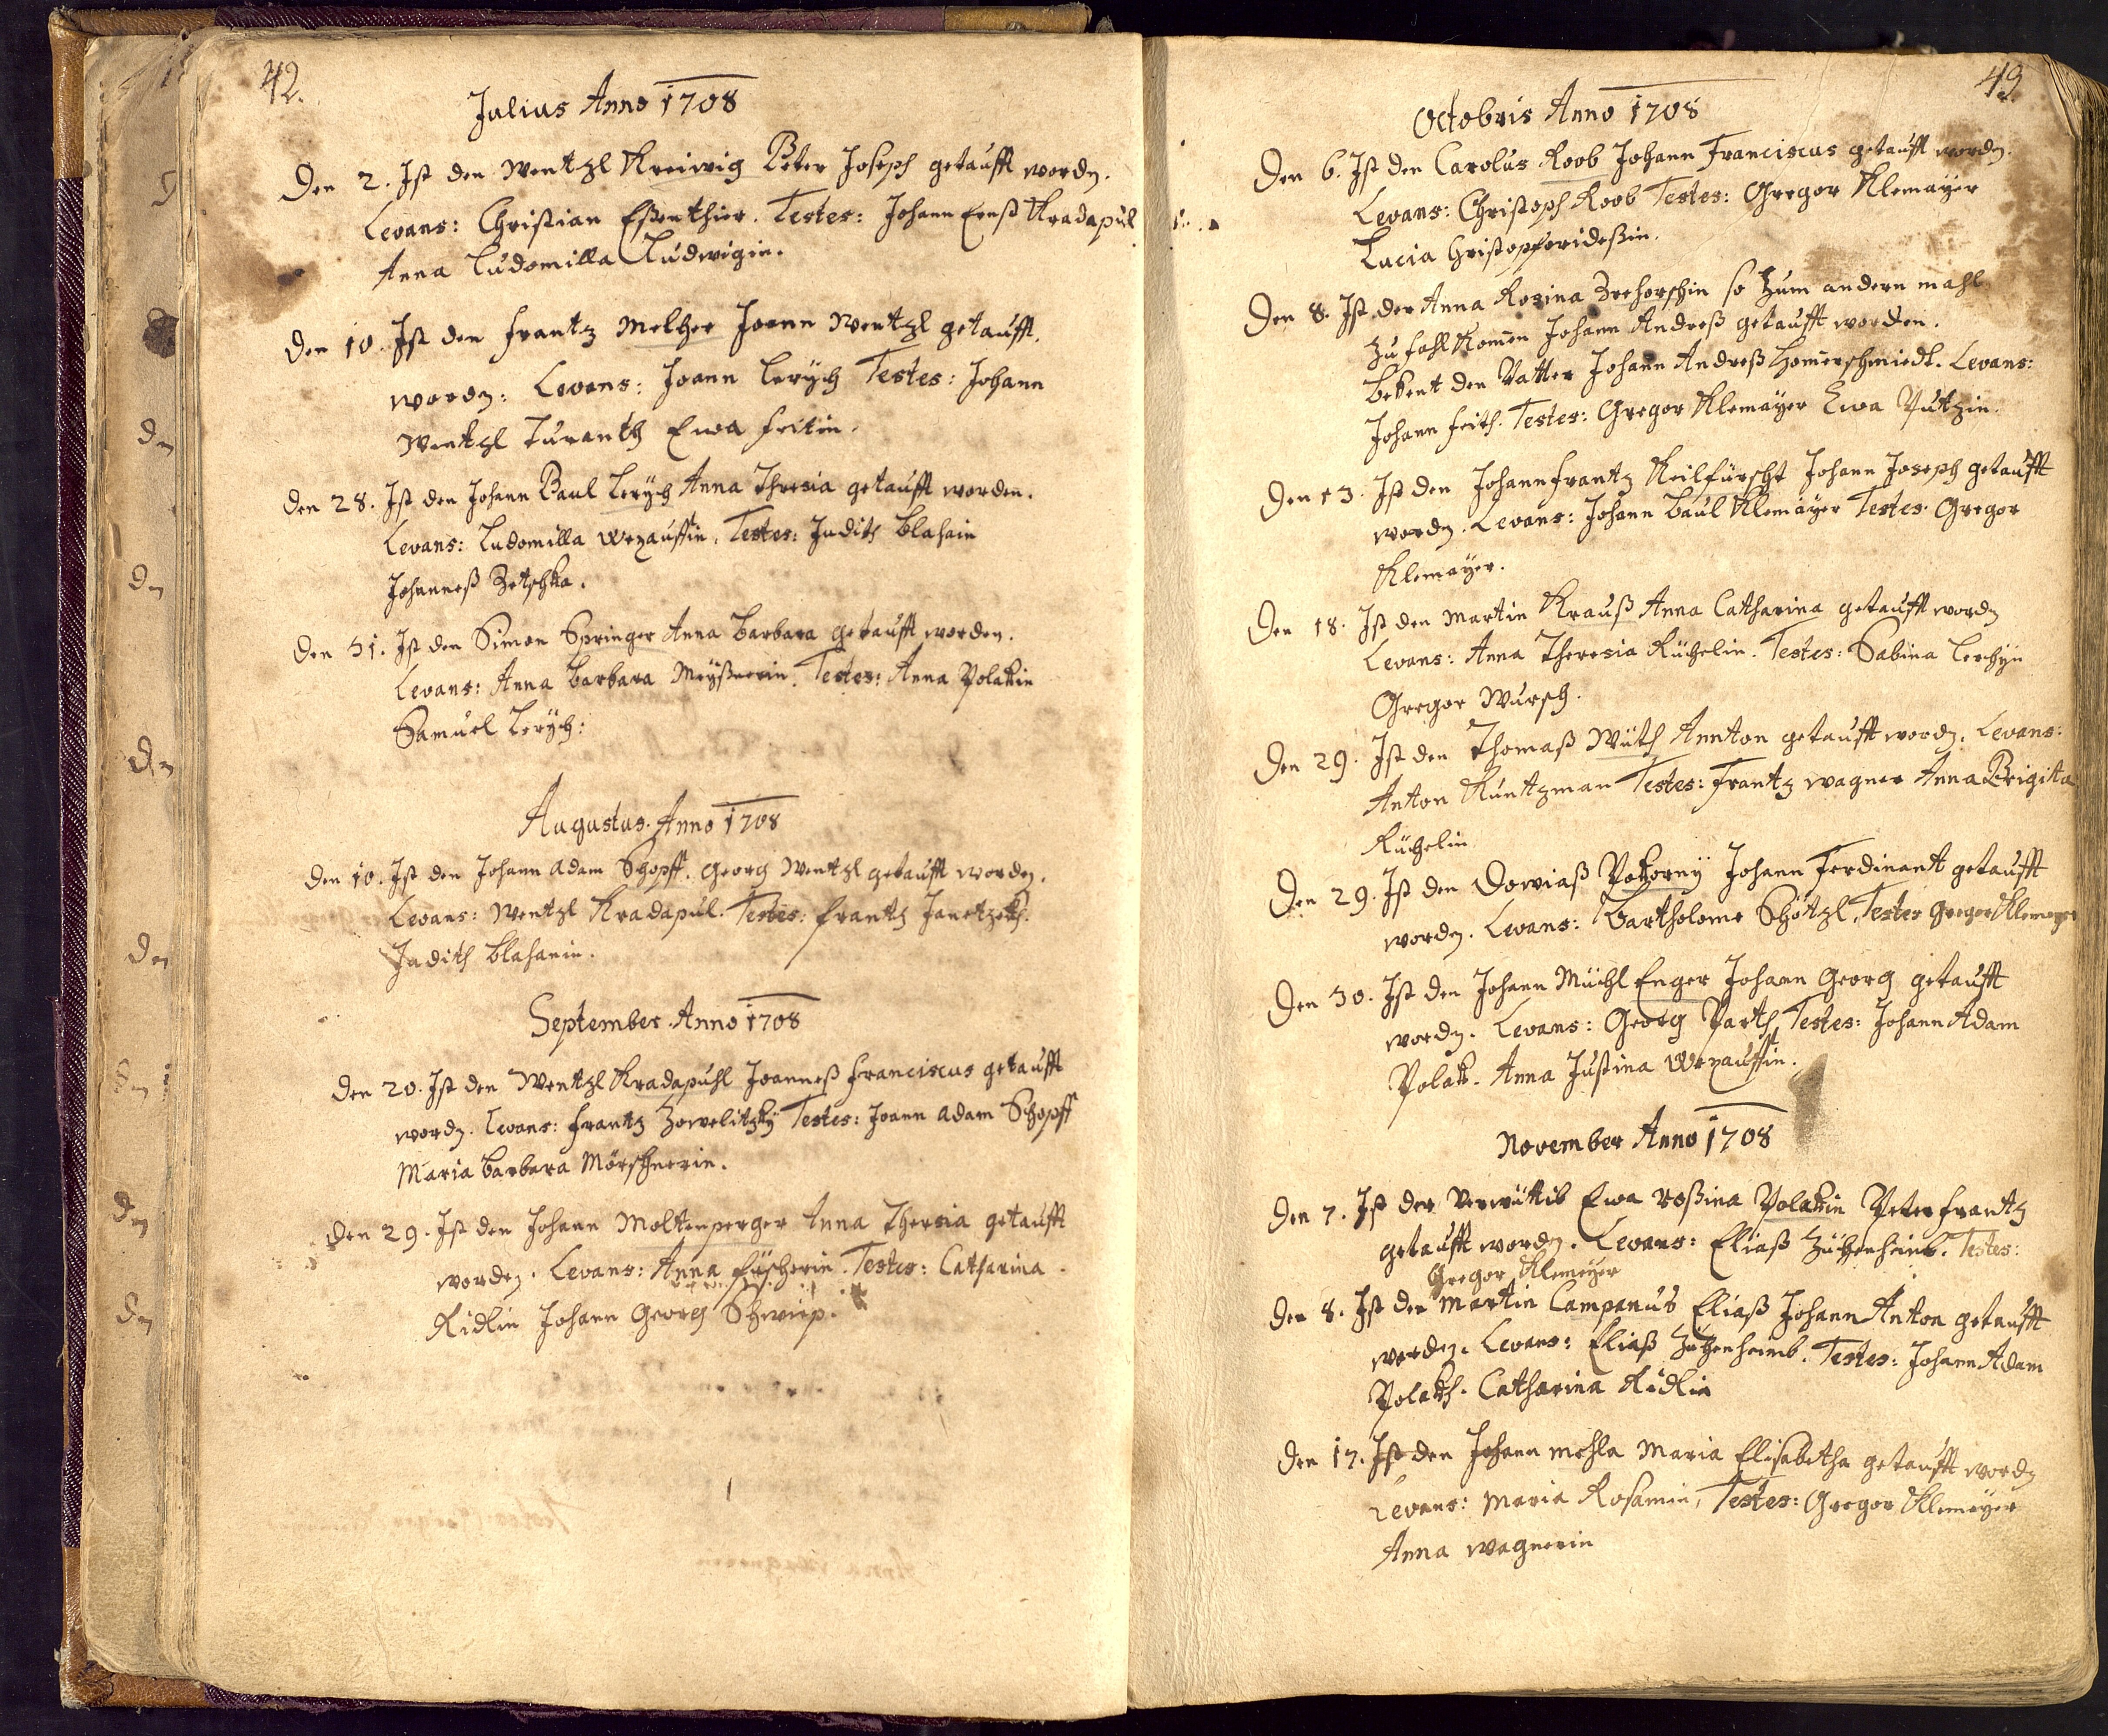 42.
Julius Anno 1708
Den 2. Ist den Wentzl Kreiwig Peter Joseph getaufft wordn.
Levans: Christian Eßenthier. Testes: Johann Ernst Kradapul
Anna Ludomilla Ludwigin.
Den 10. Ist den Frantz Melcher Joann Wentzl getaufft.
wordn: Levans: Joann Lerÿch Testes: Johann
Wentzl Turanth Ewa Feitin.
Den 28. Ist den Johann Paul Lerÿch Anna Thresia getaufft worden.
Levans: Ludomilla Wrzauffin. Testes: Judith Blahain
Johanneß Zetschka.
Den 31. Ist den Simon Springer Anna Barbara getaufft worden.
Levans: Anna Barbara Meÿßnerin. Testes: Anna Polakin
Samuel Lerÿch:
Augustus Anno 1708
Den 10. Ist den Johann Adam Schopff. Georg Wentzl getaufft worden.
Levans: Wentzl Kradapul. Testes: Frantz Janetzekh.
Judith Blahanin.
September Anno 1708
Den 20. Ist den Wentzl Kradapuhl Joanneß Franciscus getaufft
wordn. Levans: Frantz Zowelitzkÿ Testes: Joann Adam Schopff
Maria Barbara Mörschnerin.
Den 29. Ist den Johann Moltenperger Anna Thersia getaufft
worden. Levans: Anna Fischerin. Testes: Catharina
Ridlin Johann Georg Schwip.
43
Octobris Anno 1708
Den 6. Ist den Carolus Koob Johann Franciscus getaufft wordn.
Levans: Christoph Koob Testes: Gregor Klemaÿer
Lucia Christopferideßin.
Den 8. Ist der Anna Rosina Zrehorschin so Zum andern mahl
Zu fahl Komen Johann Andreß getaufft worden.
bekent den Vatter Johann Andreß Homerschmiedt. Levans:
Johann Feith. Testes: Gregor Klemaÿer Ewa Putzin.
Den 13. Ist den Johann Frantz Keilfürscht Johann Joseph getaufft
wordn. Levans: Johann Paul Klemaÿer Testes: Gregor
Klemaÿer.
Den 18. Ist den Martin Krauß Anna Catharina getaufft wordn
Levans: Anna Theresia Küchelin. Testes: Sabina Lerchÿn
Gregor Wursch.
Den 29. Ist den Thomaß Wüth Annton getaufft wordn. Levans:
Anton Kuntzman Testes: Frantz Wagner Anna Brigitta
Küchelin
Den 29. Ist den Dowiaß Pokornÿ Johann Ferdinant getaufft
wordn. Levans: Bartholome Schötzl. Testes Gregor Klemayer
Den 30. Ist den Johann Müchl Enger Johann Georg getaufft
wordn. Levans: Georg Parth Testes: Johann Adam
Polak. Anna Justina Wrzauffin.
November Anno 1708
Den 7. Ist der Verwittib Ewa Roßina Polakin Peter Frantz
getaufft wordn. Levans: Eliaß Zützenheimb. Testes:
Gregor Klemeÿer
Den 8. Ist den Martin Campanus Eliaß Johann Anton getaufft
worden. Levans: Eliaß Zützenheimb. Testes: Johann Adam
Polakh. Catharina Ridlin
Den 17. Ist den Johann Mohla Maria Elisabetha getaufft wordn
Levans: Maria Rosamin, Testes: Gregor Klemeÿer
Anna Wagnerin